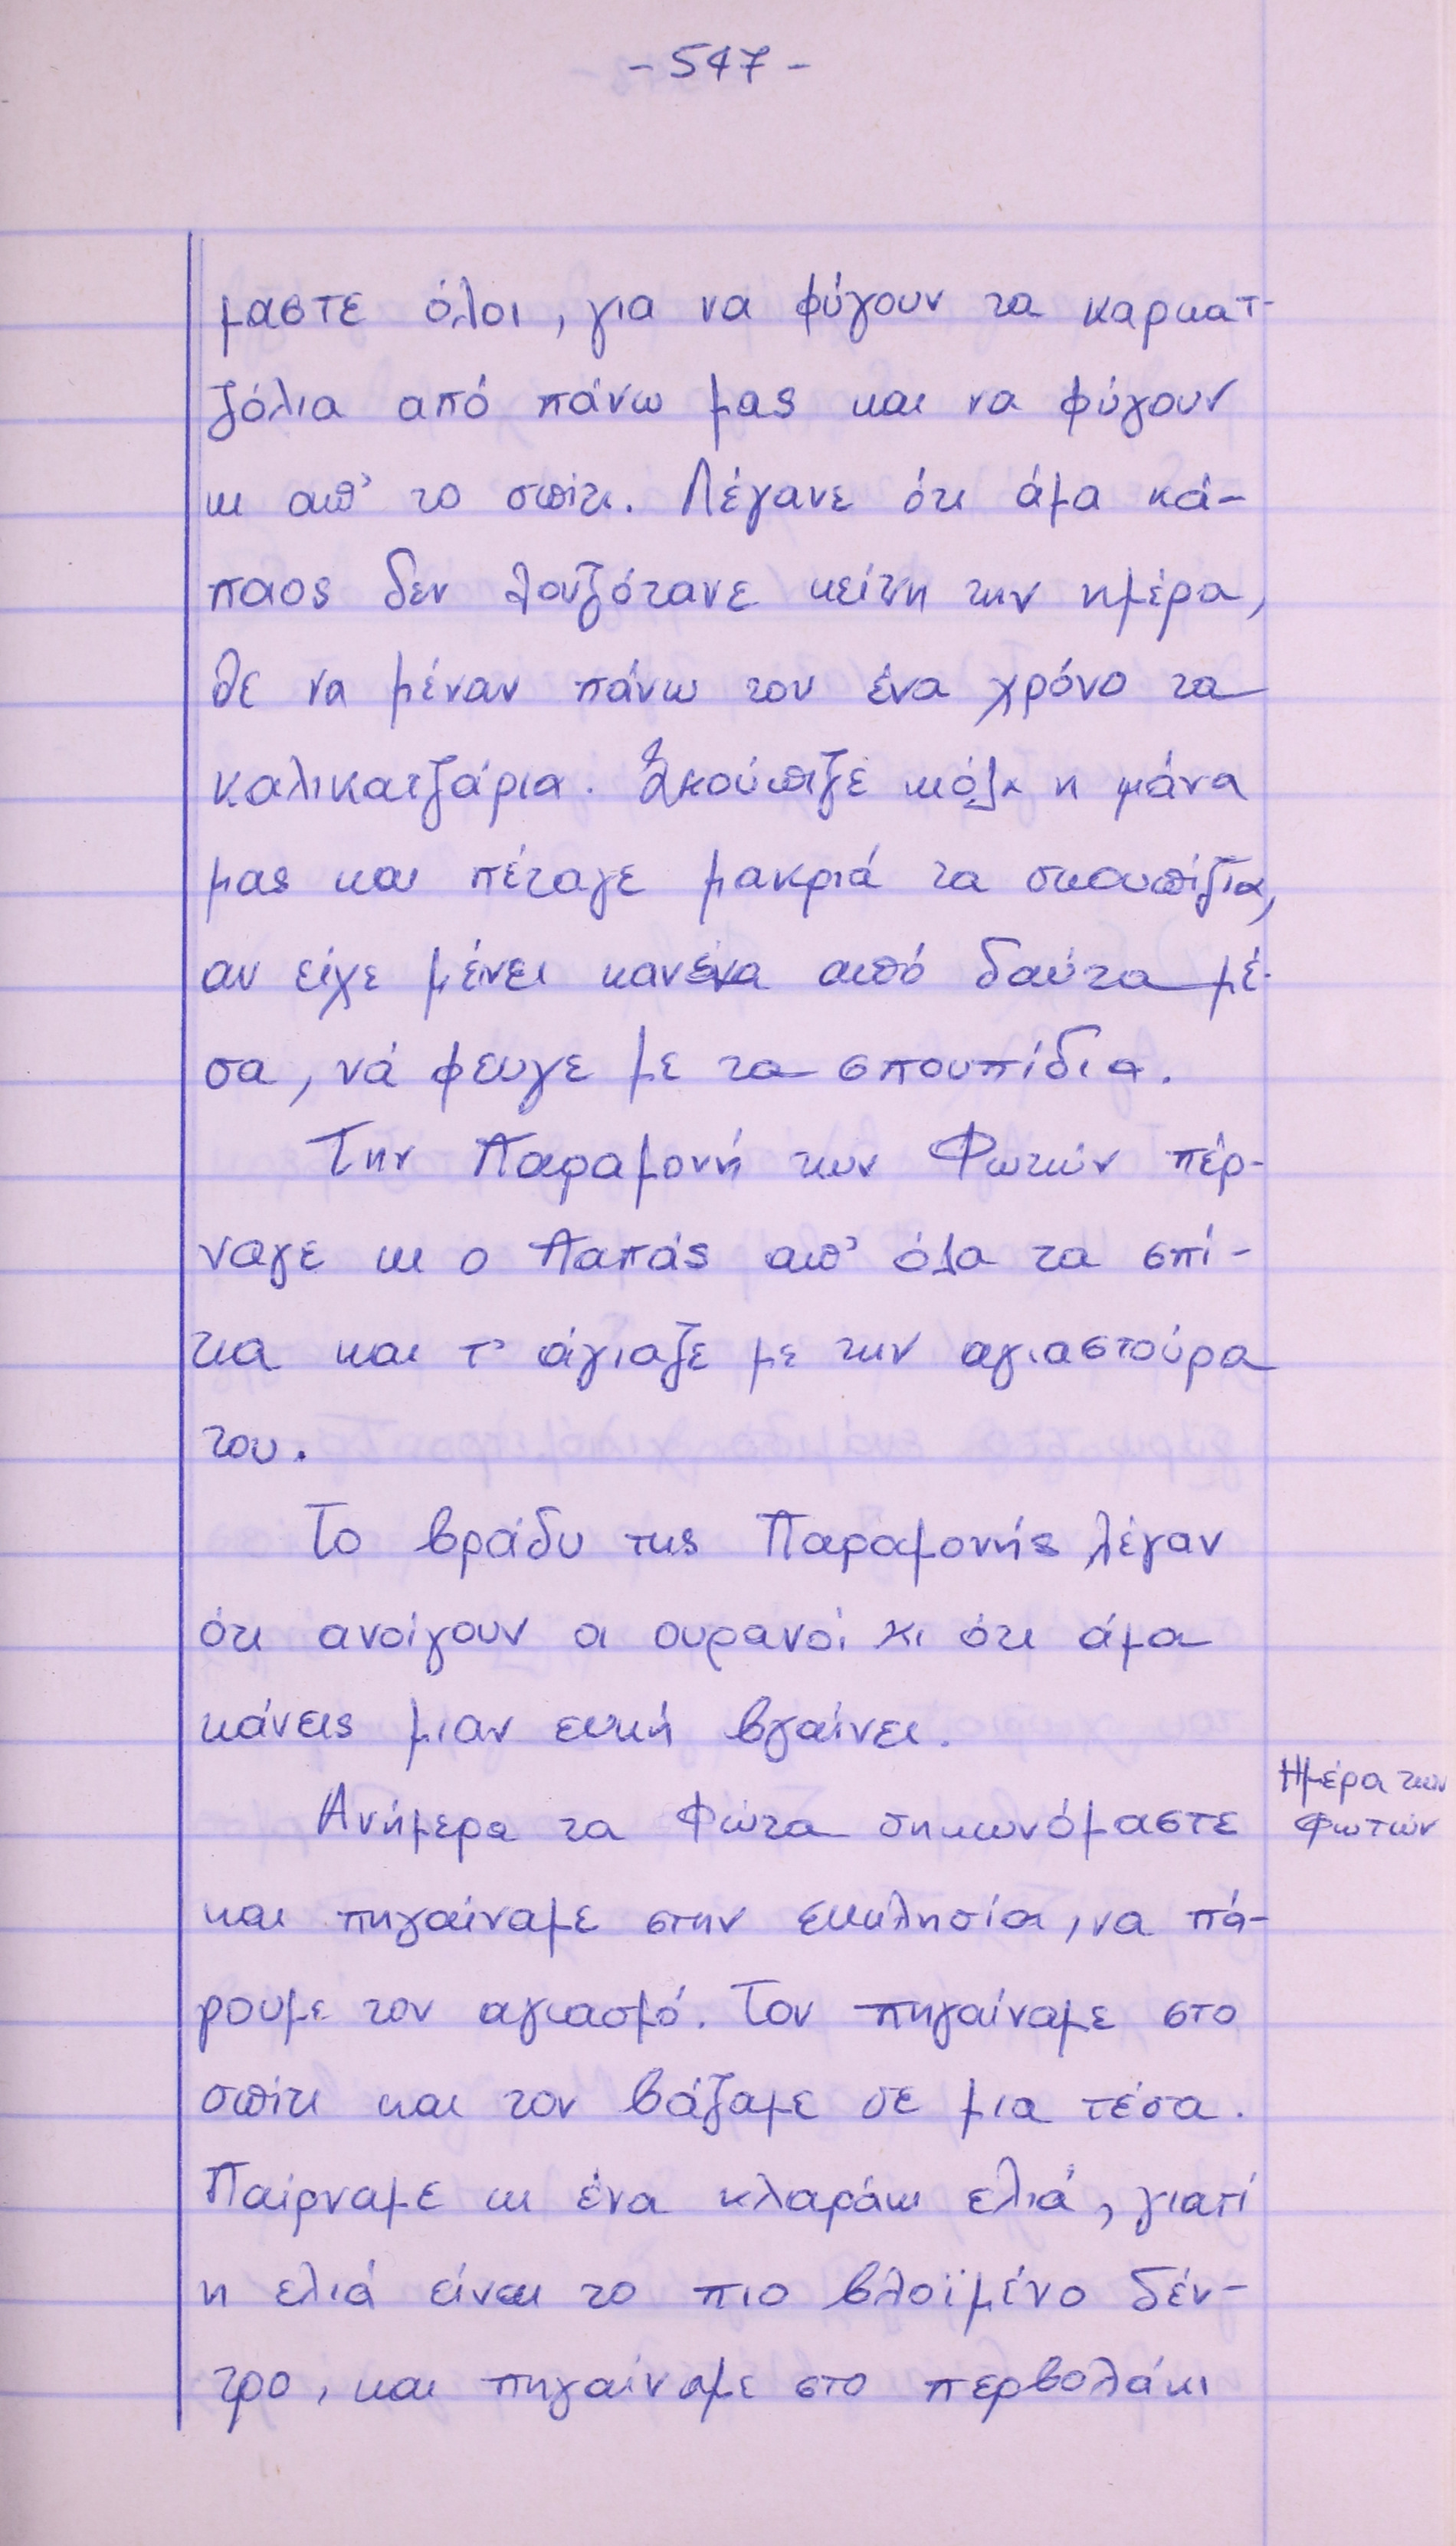 - 547 -
μαστε όλοι, για να φύγουν τα καρκατ-
ζόλια από πάνω μας και να φύγουν
κι απ' το σπίτι. Λέγανε ότι άμα κά-
ποιος δεν λουζότανε κείνη την ημέρα,
θε να μέναν πάνω του ένα χρόνο τα
καλικατζάρια. Σκούπιζε κιόλα η μάνα
μας και πέταγε μακριά τα σκουπίδια,
αν είχε μείνει κανένα από δαύτα μέ-
σα, νά φευγε με τα σπουπίδια.
Την Παραμονή των Φωτών πέρ-
ναγε κι ο Παπάς απ' όλα τα σπί-
τια και τ' άγιαζε με την αγιαστούρα
του.
Το βράδυ της Παραμονής λέγαν
ότι ανοίγουν οι ουρανοί κι ότι άμα
κάνεις μιαν ευκή βγαίνει.
Ανήμερα τα Φώτα σηκωνόμαστε
Ημέρα των
Φωτών
και πηγαίναμε στην εκκλησία, να πά-
ρουμε τον αγιασμό. Τον πηγαίναμε στο
σπίτι και τον βάζαμε σε μια τέσα.
Παίρναμε κι ένα κλαράκι ελιά, γιατί
η ελιά είναι το πιο βλοϊμένο δέν-
τρο, και πηγαίναμε στο περβολάκι